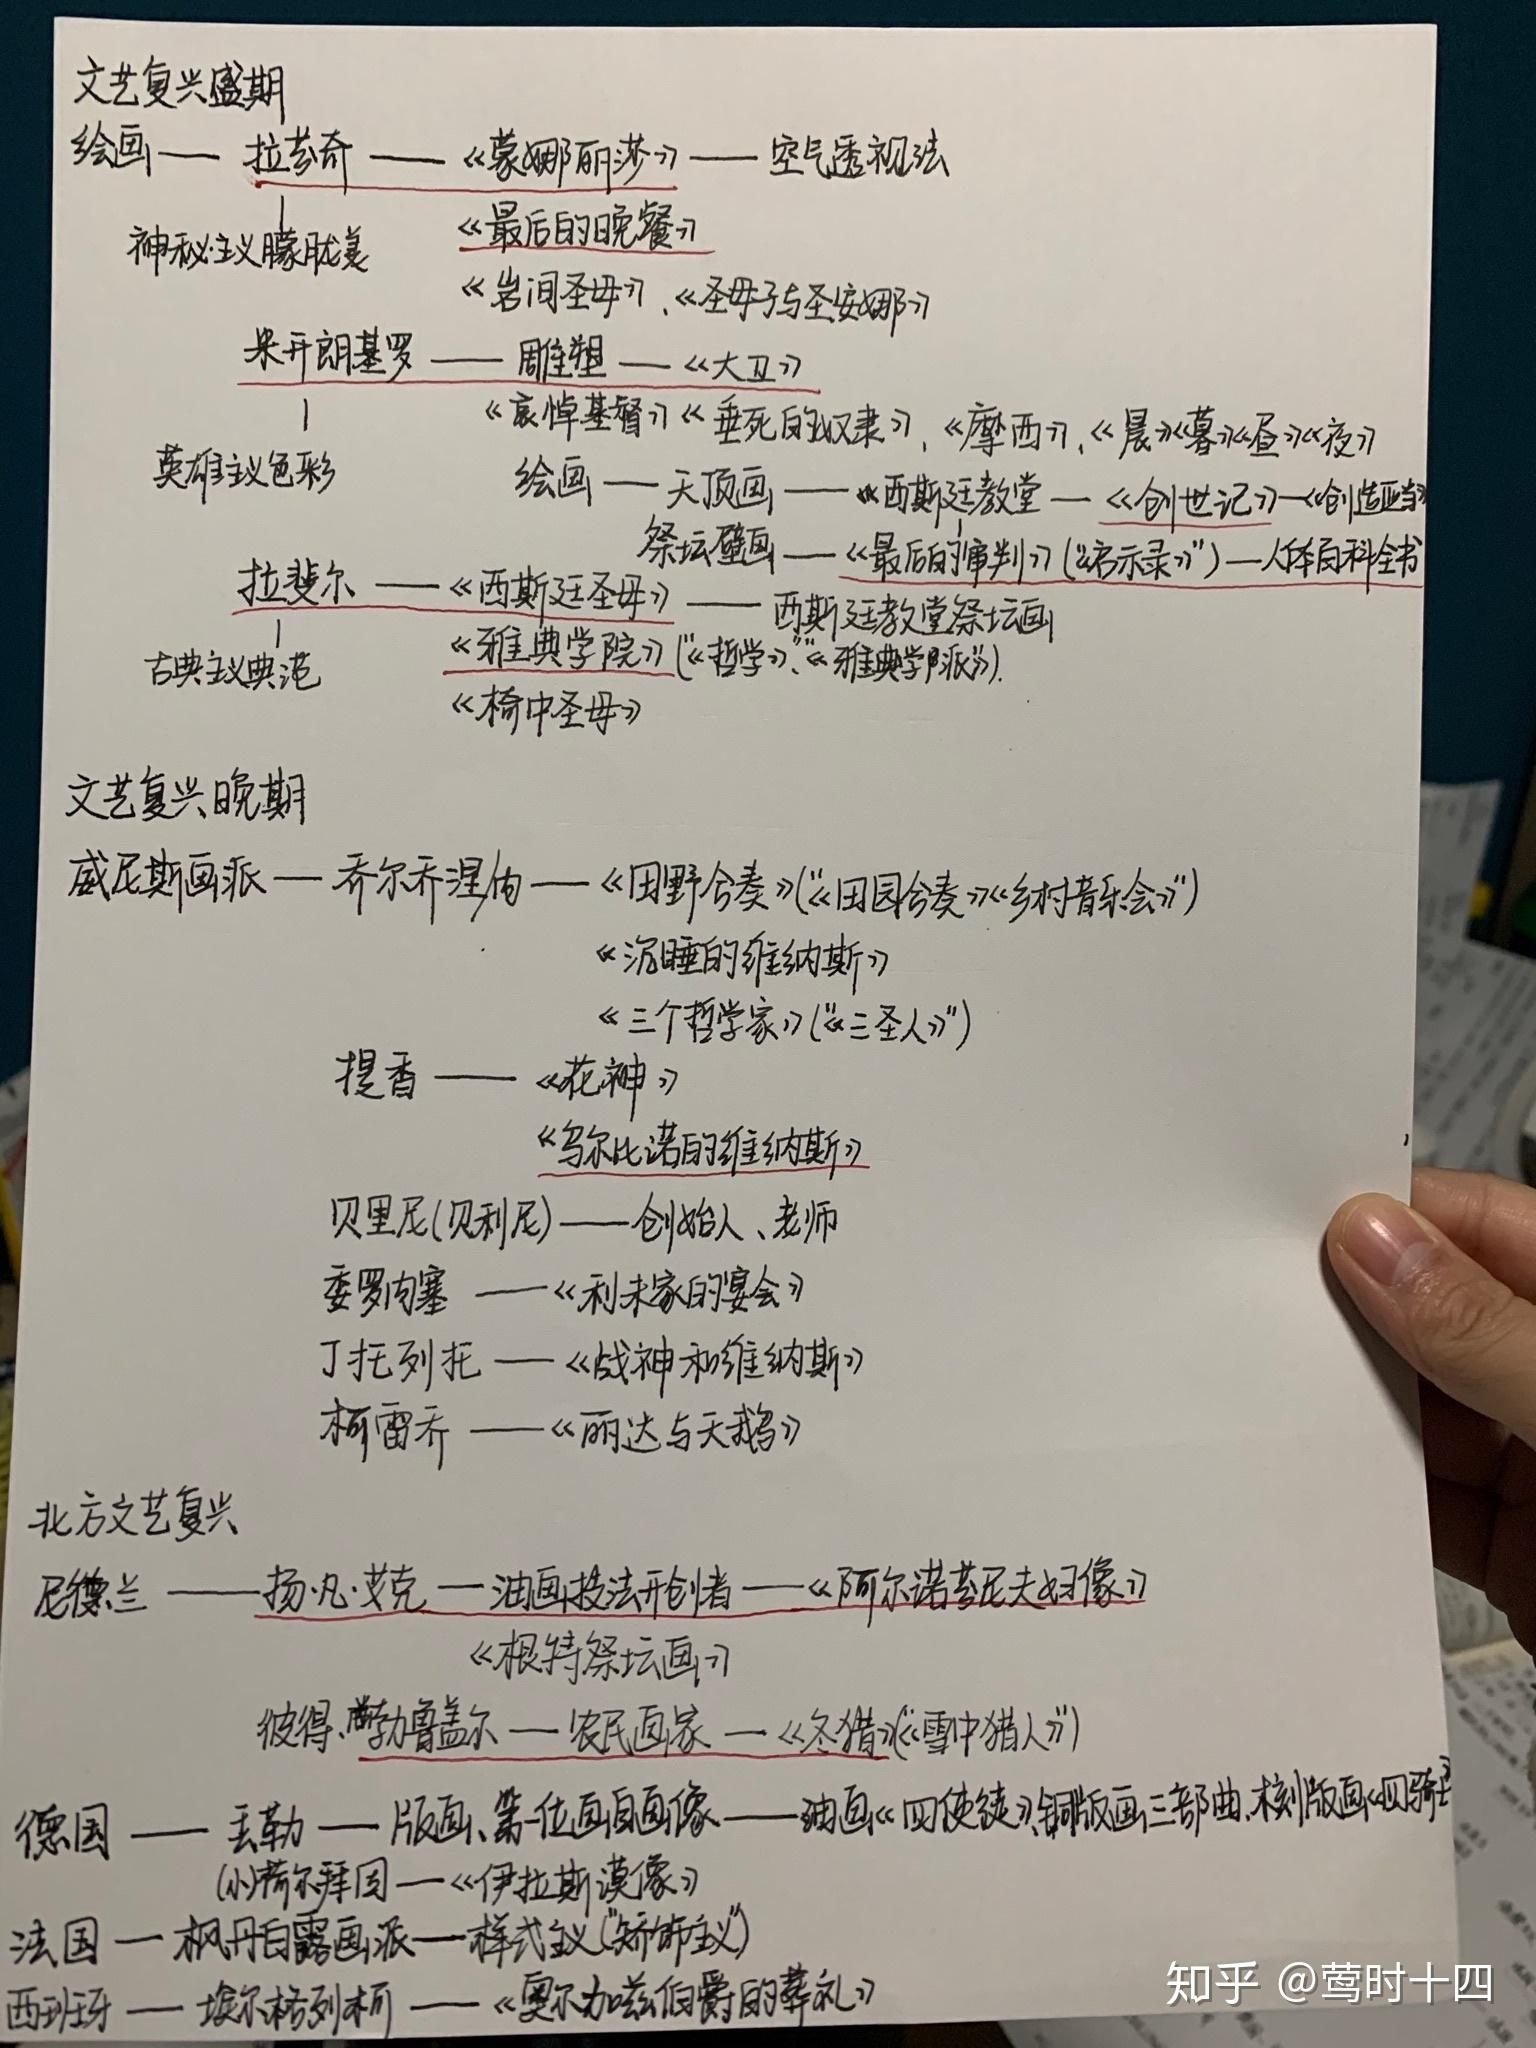 文艺复兴盛期
绘画——拉芬奇——《蒙娜丽莎》——空气透视法
《最后的晚餐》
神秘主义朦胧美
《岩间圣母》、《圣母子与圣安娜》
米开朗基罗——雕塑——《大卫》
《哀悼基督》《垂死的奴隶》、《摩西》、《晨》《暮》《昼》《夜》
英雄主义色彩
绘画——天顶画——《西斯廷教堂—《创世记》—《创造亚当》
祭坛壁画——《最后的审判》("启示录》")—人体百科全书
拉斐尔——《西斯廷圣母》——西斯廷教堂祭坛画
《雅典学院》("《哲学》"、"《雅典学派》").
古典主义典范
《椅中圣母》
文艺复兴晚期
威尼斯画派—乔尔乔涅——《田野合奏》("《田园合奏》《乡村音乐会》")
《沉睡的维纳斯》
《三个哲学家》("《三圣人》")
提香——《花神》
《乌尔比诺的维纳斯》
贝里尼(贝利尼)——创始人、老师
委罗内塞——《利未家的宴会》
丁托列托——《战神和维纳斯》
柯雷乔——《丽达与天鹅》
北方文艺复兴
尼德兰——扬·凡·艾克—油画技法开创者——《阿尔诺芬尼夫妇像》
《根特祭坛画》
彼得·勃鲁盖尔—农民画家—《冬猎》("《雪中猎人》")
德国——丢勒—版画、第一位画自画像——油画《四使徒》、铜版画三部曲、木刻版画《四骑士》
(小)荷尔拜因—《伊拉斯谟像》
法国—枫丹白露画派—样式主义("矫饰主义")
西班牙——埃尔格列柯——《奥尔加兹伯爵的葬礼》
知乎 @莺时十四